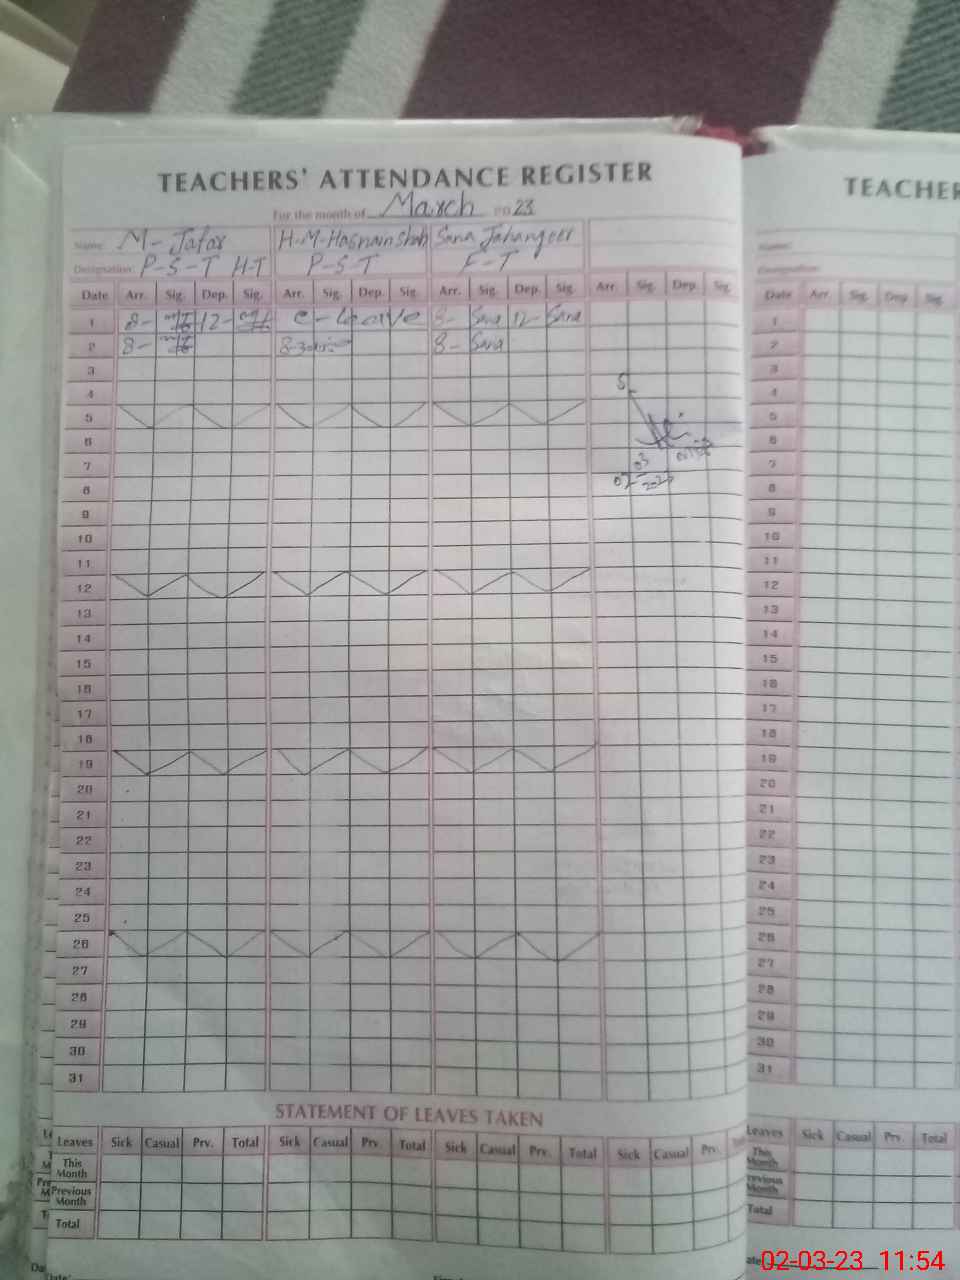 TEACHERS' ATTENDANCE REGISTER
For the month of March 20 23
Name: M-Jafar H-M-Hasnain Shah Sana Jahangeer
Designation: P-S-T H-T P-S-T E-T
Date Arr. Sig. Dep. Sig. Arr. Sig. Dep. Sig. Arr. Sig. Dep. Sig. Arr. Sig. Dep. Sig.
1 8- 12- C-Leave 8- Sana 12- Sana
2 8- 8-30 8- Sana
3
4
5
6
7
8
9
10
11
12
13
14
15
16
17
18
19
20
21
22
23
24
25
26
27
28
29
30
31
STATEMENT OF LEAVES TAKEN
Leaves Sick Casual Prv. Total Sick Casual Prv. Total Sick Casual Prv. Total Sick Casual Prv.
This Month
Previous Month
Total
TEACHER
Name:
Designation:
Date Arr. Sig. Dep. Sig.
1
2
3
4
5
6
7
8
9
10
11
12
13
14
15
16
17
18
19
20
21
22
23
24
25
26
27
28
29
30
31
Leaves Sick Casual Prv. Total
This Month
Previous Month
Total
02-03-23 11:54